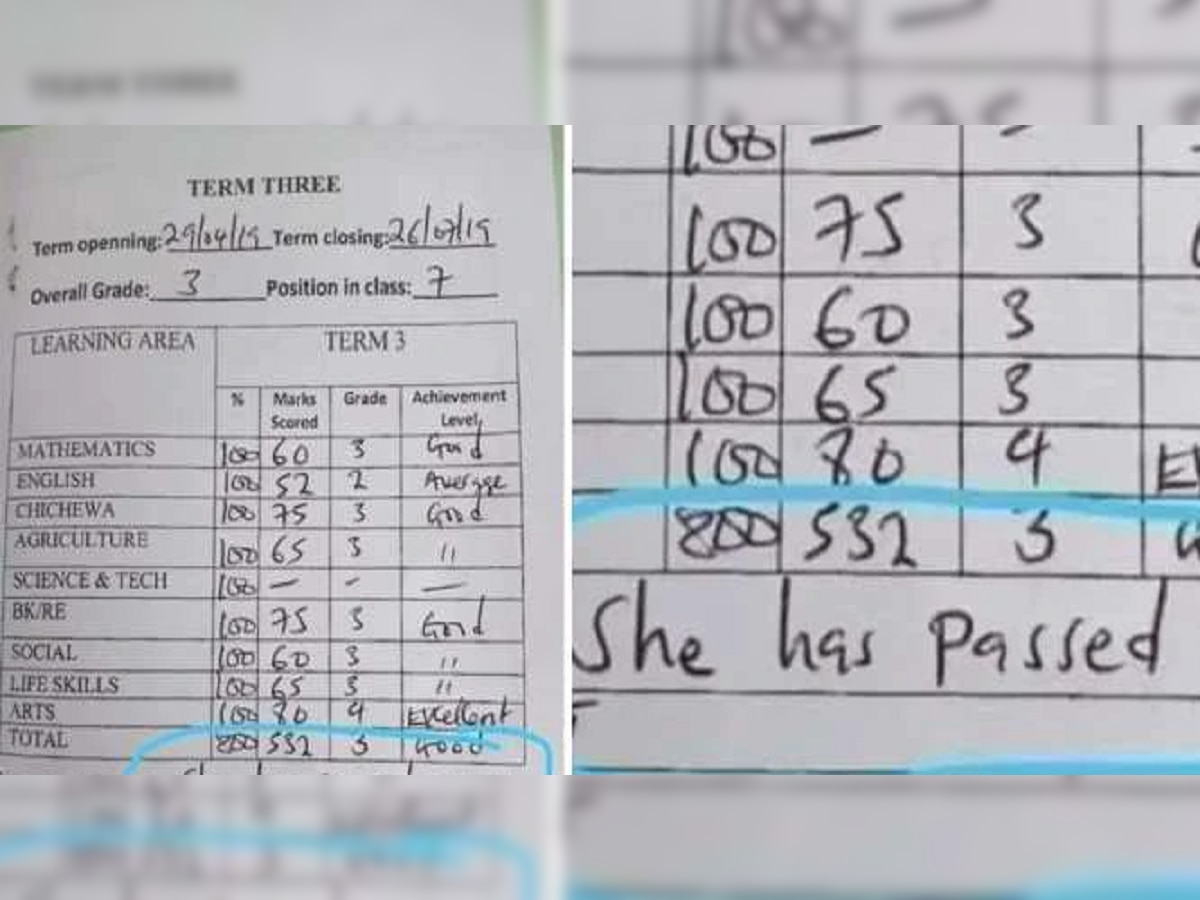 TERM THREE
Term openning: 29/04/19 Term closing: 26/07/19
Overall Grade: 3 Position in class: 7
LEARNING AREA TERM 3
% Marks Scored Grade Achievement Level
MATHEMATICS 100 60 3 Good
ENGLISH 100 52 2 Average
CHICHEWA 100 75 3 Good
AGRICULTURE 100 65 3 "
SCIENCE & TECH 100 — - —
BK/RE 100 75 3 Good
SOCIAL 100 60 3 "
LIFE SKILLS 100 65 3 "
ARTS 100 80 4 Excellent
TOTAL 800 532 3 Good
100 — -
100 75 3
100 60 3
100 65 3
100 80 4 Ex
800 532 3
She has passed